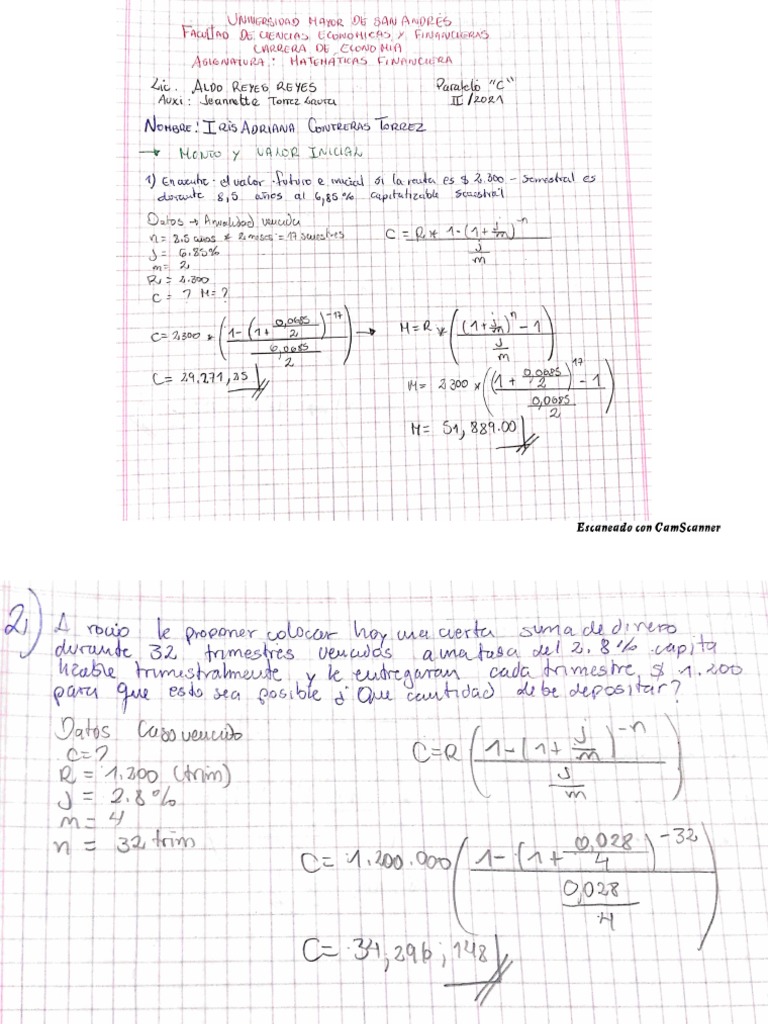 UNIVERSIDAD MAYOR DE SAN ANDRES
FACULTAD DE CIENCIAS ECONOMICAS Y FINANCIERAS
CARRERA DE ECONOMIA
ASIGNATURA: MATEMÁTICAS FINANCIERA
Lic. ALDO REYES REYES Paralelo "C"
Auxi: Jeannette Torrez II/2021
NOMBRE: IRIS ADRIANA CONTRERAS TORREZ
→ MONTO Y VALOR INICIAL
1) Encuentre el valor futuro e inicial si la renta es $ 2.300 - semestral es
durante 8,5 años al 6,85% capitalizable semestral
Datos → Anualidad vencida
n = 8.5 años * 2 meses = 17 semestres
j = 6.85%
m = 2
R = 2.300
C = ? M = ?
C = R * 1-(1+j/m)^-n / j/m
C = 2,300 * (1-(1+0,0685/2)^-17 / 0,0685/2) →
C = 29.271,25
M = R * ((1+j/m)^n - 1 / j/m)
M = 2300 * ((1+0,0685/2)^17 - 1 / 0,0685/2)
M = 51,889.00
Escaneado con CamScanner
2) A rocio le proponer colocar hoy una cierta suma de dinero
durante 32 trimestres vencidos a una tasa del 2.8% capita
lizable trimestralmente y le entregaran cada trimestre $ 1.200
para que esto sea posible ¿Que cantidad debe depositar?
Datos Caso vencido
C=?
R = 1.200 (trim)
j = 2.8%
m = 4
n = 32 trim
C = R (1-(1+j/m)^-n / j/m)
C = 1.200.000 (1-(1+0,028/4)^-32 / 0,028/4)
C = 34,296,148